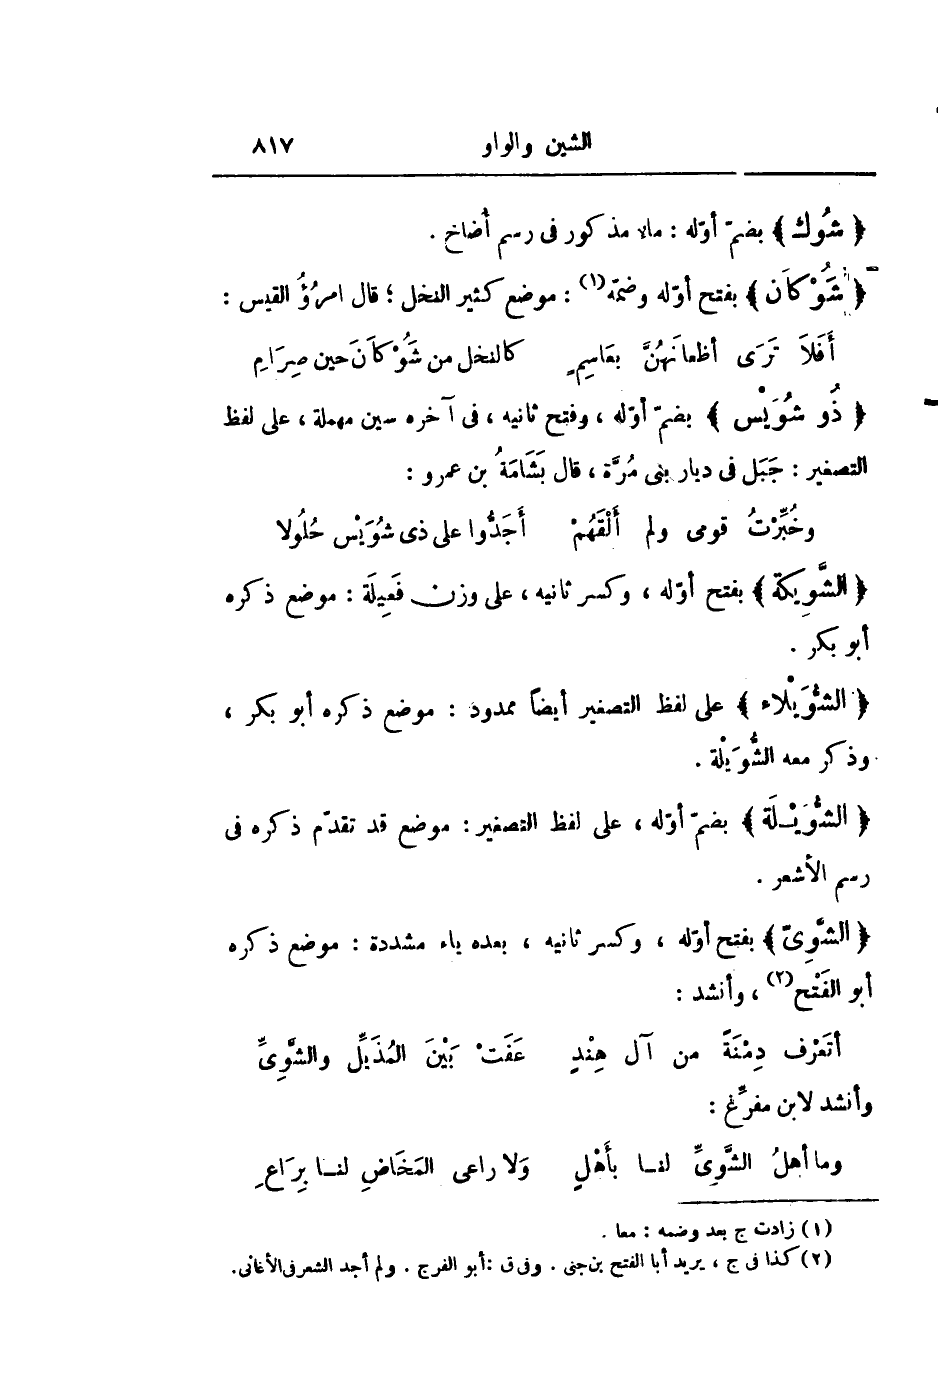 الشين والواو ٨١٧
﴿ شُوك ﴾ بضمّ أوّله : ماء مذكور فى رسم أُضاخ .
﴿ شَُوْكَان ﴾ بفتح أوّله وضمّه(١) : موضع كثير النخل ؛ قال امرُؤُ القيس :
أَفَلاَ تَرَى أظعانَهُنَّ بعَاسِمٍ كالنخل من شَُوْكاَنَ حين صِرَامِ
﴿ ذُو شُوَيْس ﴾ بضمّ أوّله ، وفتح ثانيه ، فى آخره سين مهملة ، على لفظ
التصغير : جَبَل فى ديار بنى مُرَّة ، قال بَشَامَةُ بن عمرو :
وخُبِّرْتُ قومى ولم أَلْقَهُمْ أَجَدُّوا على ذى شُوَيْس حُلُولا
﴿ الشَّوِيكة ﴾ بفتح أوّله ، وكسر ثانيه ، على وزن فَعِيلَة : موضع ذكره
أبو بكر .
﴿ الشُّوَيْلاء ﴾ على لفظ التصغير أيضاً ممدود : موضع ذكره أبو بكر ،
وذكر معه الشُّوَيْلة .
﴿ الشُّوَيْلَة ﴾ بضمّ أوّله ، على لفظ التصغير : موضع قد تقدّم ذكره فى
رسم الأشعر .
﴿ الشَّوِىّ ﴾ بفتح أوّله ، وكسر ثانيه ، بعده ياء مشددة : موضع ذكره
أبو الفَتْح(٢) ، وأنشد :
أتَعْرف دِمْنَةً من آل هِنْدٍ عَفَتْ بَيْنَ المُذَيِّل والشَّوِىِّ
وأنشد لابن مفرِّغ :
وما أهلُ الشَّوِىِّ لنا بأَهْلٍ وَلا راعى المَخَاضِ لنا بِرَاعِ
(١) زادت ج بعد وضمه : معا .
(٢) كذا فى ج ، يريد أبا الفتح بن جنى . وفى ق : أبو الفرج . ولم أجد الشعر فى الأغانى .